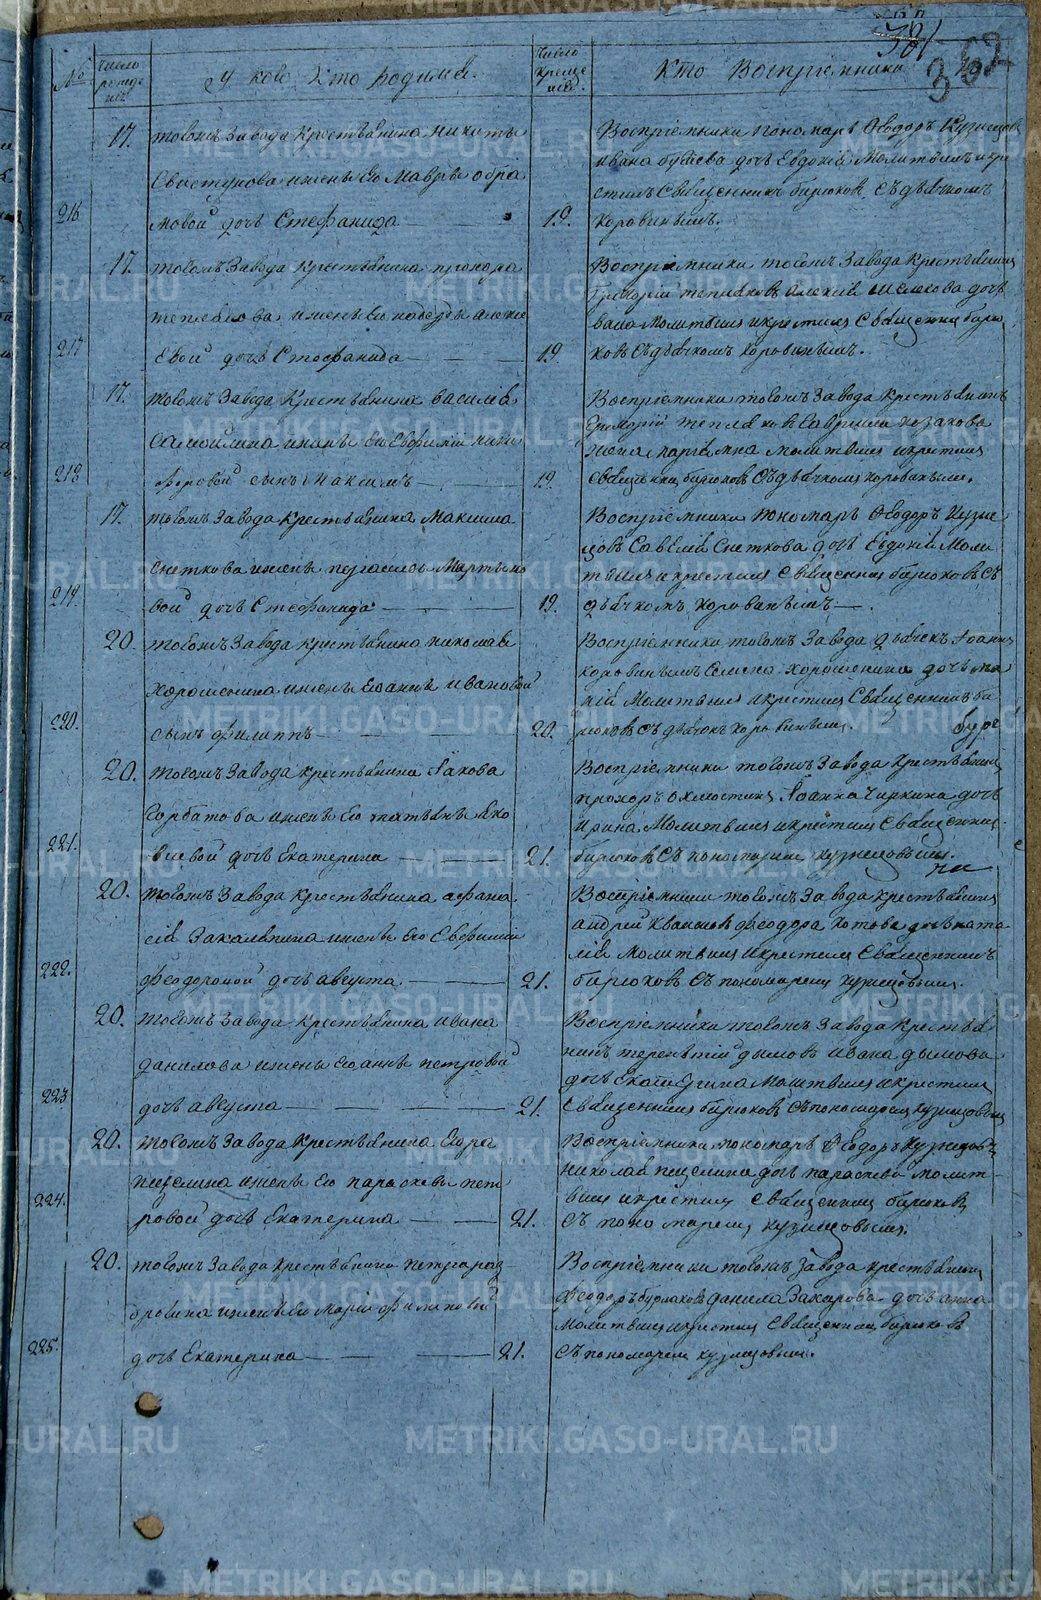 362
№
Число рожде ния
У ково Кто родился
Число Креще ния
Кто Восприемники
216
17.
тогожъ Завода Крестьянина Никиты
Свистунова жены Его Мавры Абра
мовой дочь Стефанида
19.
Восприемники пономарь Феодоръ Кузнецовъ
Ивана дочь Евдокия Молитвилъ и кре
стилъ Священникъ Бирюковъ Съ дьячкомъ
Коровинымъ.
217
17.
тогожъ Завода Крестьянина Прохора
Теплякова жены Его Алексе
евой дочь Стефанида
19.
Восприемники тогожъ Завода Крестьянинъ
Григорий Тепляковъ Алексея дочь
Молитвилъ и крестилъ Священникъ Бирю
ковъ Съ дьячкомъ Коровинымъ.
218
17.
тогожъ Завода Крестьянина Василия
Самойлина жены Его Евфимии Ники
форовой сынъ Максимъ
19.
Восприемники тогожъ Завода Крестьянинъ
Григорий Тепляковъ Гаврилы Козакова
жена Молитвилъ и крестилъ
Священникъ Бирюковъ Съ дьячкомъ Коровинымъ.
219.
17.
тогожъ Завода Крестьянина Максима
Снеткова жены Пелагеи Мартыно
вой дочь Стефанида
19.
Восприемники Пономарь Феодоръ Кузне
цовъ Савелия Снеткова дочь Евдокия Моли
твилъ и крестилъ Священникъ Бирюковъ Съ
дьячкомъ Коровинымъ.
220.
20.
тогожъ Завода Крестьянина Николая
Хорошенина жены Его Анны Ивановой
сынъ Филиппъ
20.
Восприемники тогожъ Завода дьячекъ Иоаннъ
Коровинъ Хорошенина дочь Ма
рия Молитвилъ и крестилъ Священникъ Би
рюковъ Съ дьячкомъ Коровинымъ.
221.
20.
тогожъ Завода крестьянина Якова
Горбатова жены Его Татьяны Яко
влевой дочь Екатерина
21.
Восприемники тогожъ Завода Крестьянинъ
Прохоръ Иоанна Чиркина дочь
Ирина Молитвилъ и крестилъ Священникъ
Бирюковъ Съ пономаремъ Кузнецовымъ.
222.
20.
тогожъ Завода Крестьянина Афана
сия Закаляпина жены Его Евфимии
Феодоровой дочь Августа
21.
Восприемники тогожъ Завода крестьянинъ
Андрей Феодора Котова дочь Ната
лия Молитвилъ и крестилъ Священникъ
Бирюковъ Съ пономаремъ Кузнецовымъ.
223
20.
тогожъ Завода Крестьянина Ивана
Данилова жены Его Анны Петровой
дочь Августа
21.
Восприемники тогожъ Завода Крестья
нинъ Терентий Дымовъ Ивана Дымова
дочь Екатерина Молитвилъ и крестилъ
Священникъ Бирюковъ Съ пономаремъ Кузнецовымъ
224.
20.
тогожъ Завода Крестьянина Егора
Пщелина жены Его Параскевы Пет
ровой дочь Екатерина
21.
Восприемники пономарь Феодоръ Кузнецовъ
Николая Пщелина дочь Параскева Молит
вилъ и крестилъ Священникъ Бирюковъ
Съ пономаремъ Кузнецовымъ.
225.
20.
тогожъ Завода Крестьянина Петра
жены Его Марии Филиповой
дочь Екатерина
21.
Восприемники тогожъ Завода крестьянинъ
Феодоръ Данила Захарова дочь Анна
Молитвилъ и крестилъ Священникъ Бирюковъ
Съ пономаремъ Кузнецовымъ.
METRIKI.GASO-URAL.RU